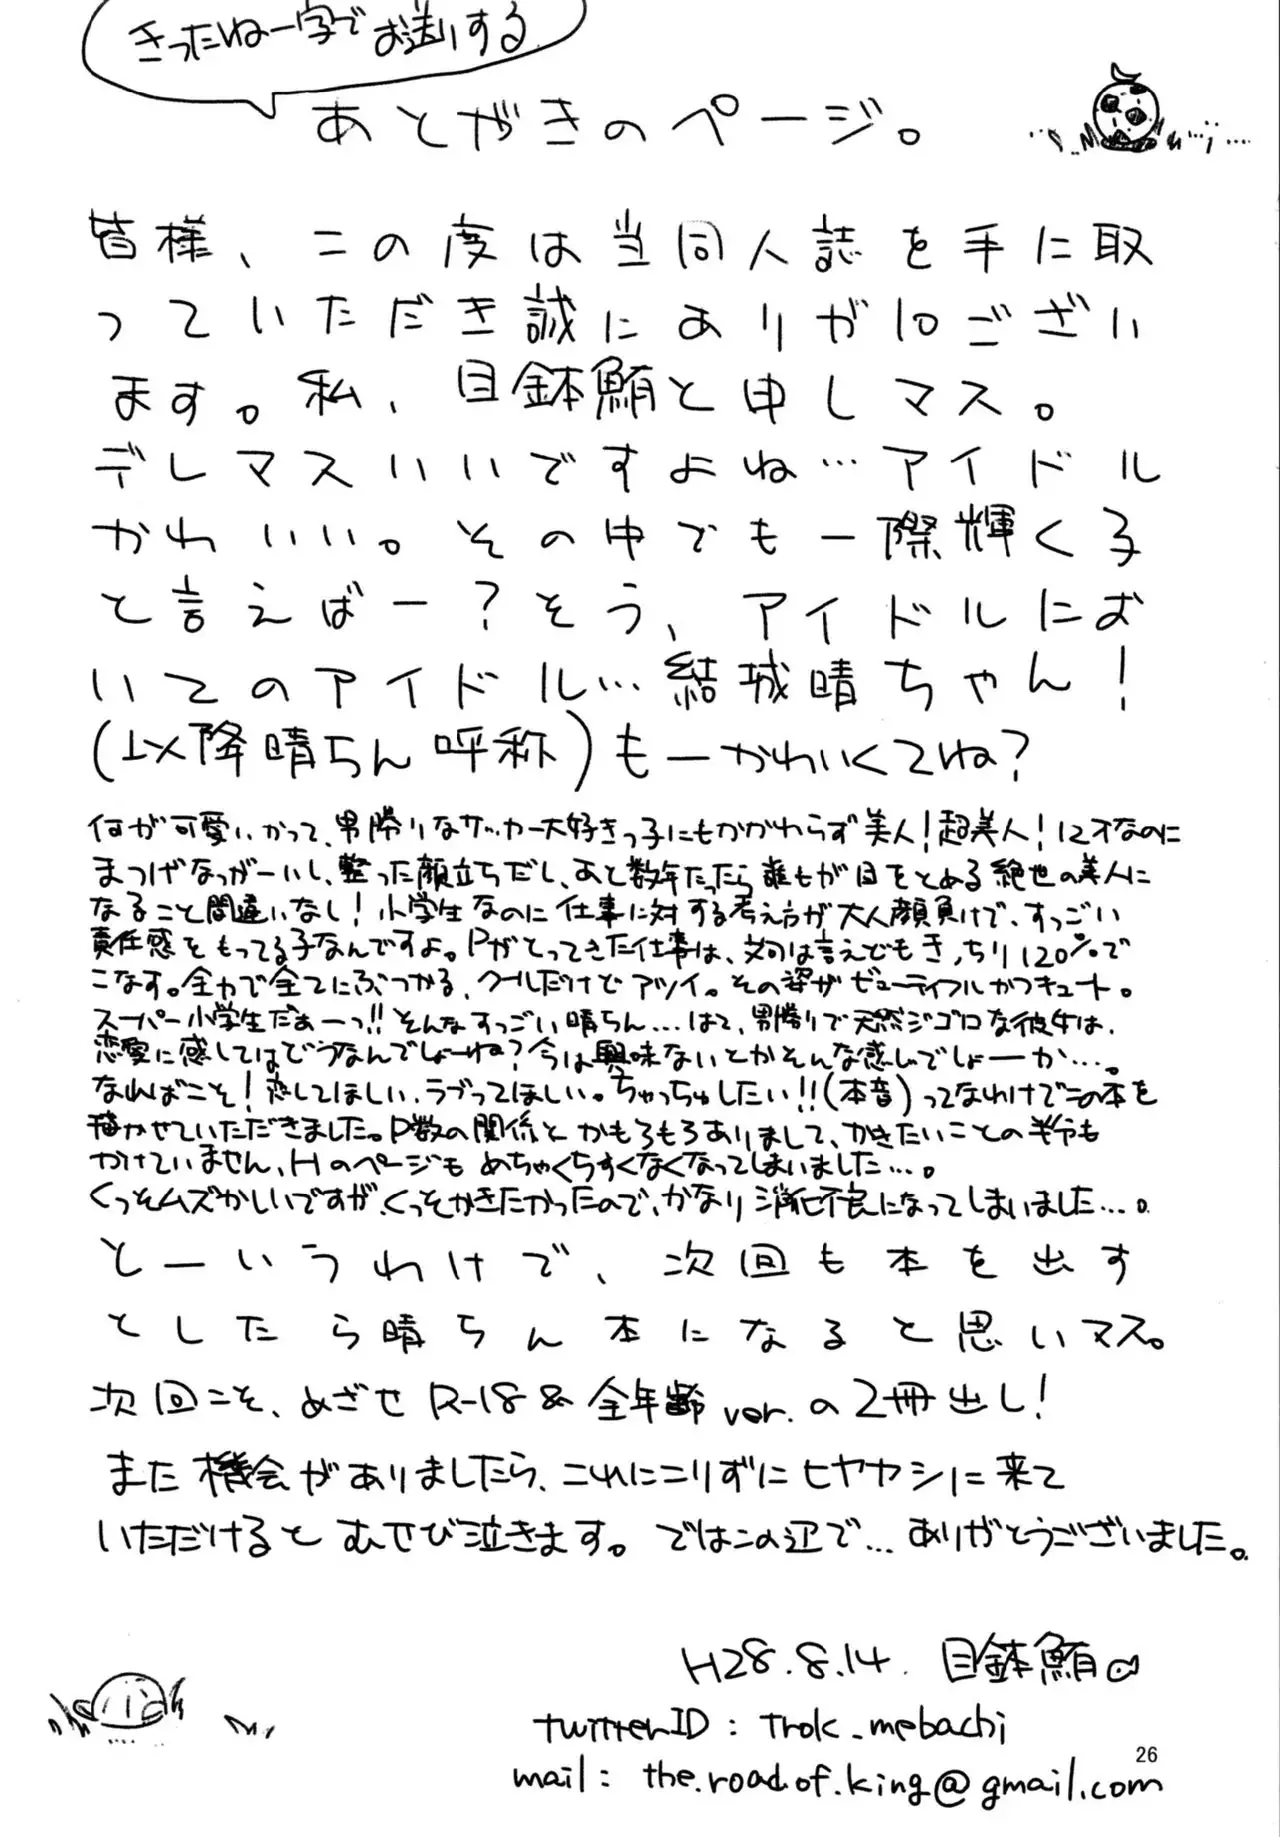 きったねー字でお送りする
あとがきのページ。
皆様、この度は当同人誌を手に取
っていただき誠にありがとうござい
ます。私、目鉢鮪と申しマス。
デレマスいいですよね…アイドル
かわいい。その中でも一際輝く子
と言えばー?そう、アイドルにお
いてのアイドル…結城晴ちゃん!
(以降晴ちん呼称)もーかわいくてね?
何が可愛いかって、男勝りなサッカー大好きっ子にもかかわらず美人!超美人!12才なのに
まつげなっがーいし、整った顔立ちだし、あと数年たったら誰もが目をとめる絶世の美人に
なること間違いなし!小学生なのに仕事に対する考え方が大人顔負けで、すっごい
責任感をもってる子なんですよ。Pがとってきた仕事は、文句は言えどもきっちり120%で
こなす。全力で全てにぶつかる、クールだけどアツイ。その姿がビューティフルかつキュート。
スーパー小学生だぁーっ!!そんなすっごい晴ちん…はて、男勝りで天然ジゴロな彼女は、
恋愛に感してはどうなんでしょーね?今は興味ないとかそんな感じでしょーか…。
なればこそ!恋してほしい、ラブってほしい。ちゃっちゅしたい!!(本音)ってなわけでこの本を
描かせていただきました。P数の関係とかもろもろありまして、かきたいことの半分も
かけていません、Hのページもめちゃくちすくなくなってしまいました…。
くっそムズかしいですが、くっそかきたかったので、かなり消化不良になってしまいました…。
とーいうわけで、次回も本を出す
としたら晴ちん本になると思いマス。
次回こそ、めざせR-18&全年齢ver.の2冊出し!
また機会がありましたら、これにこりずにヒヤカシに来て
いただけるとむせび泣きます。ではこの辺で…ありがとうございました。
H28.8.14. 目鉢鮪
twitterID : Trok_mebachi
mail : the.road.of.king@gmail.com
26